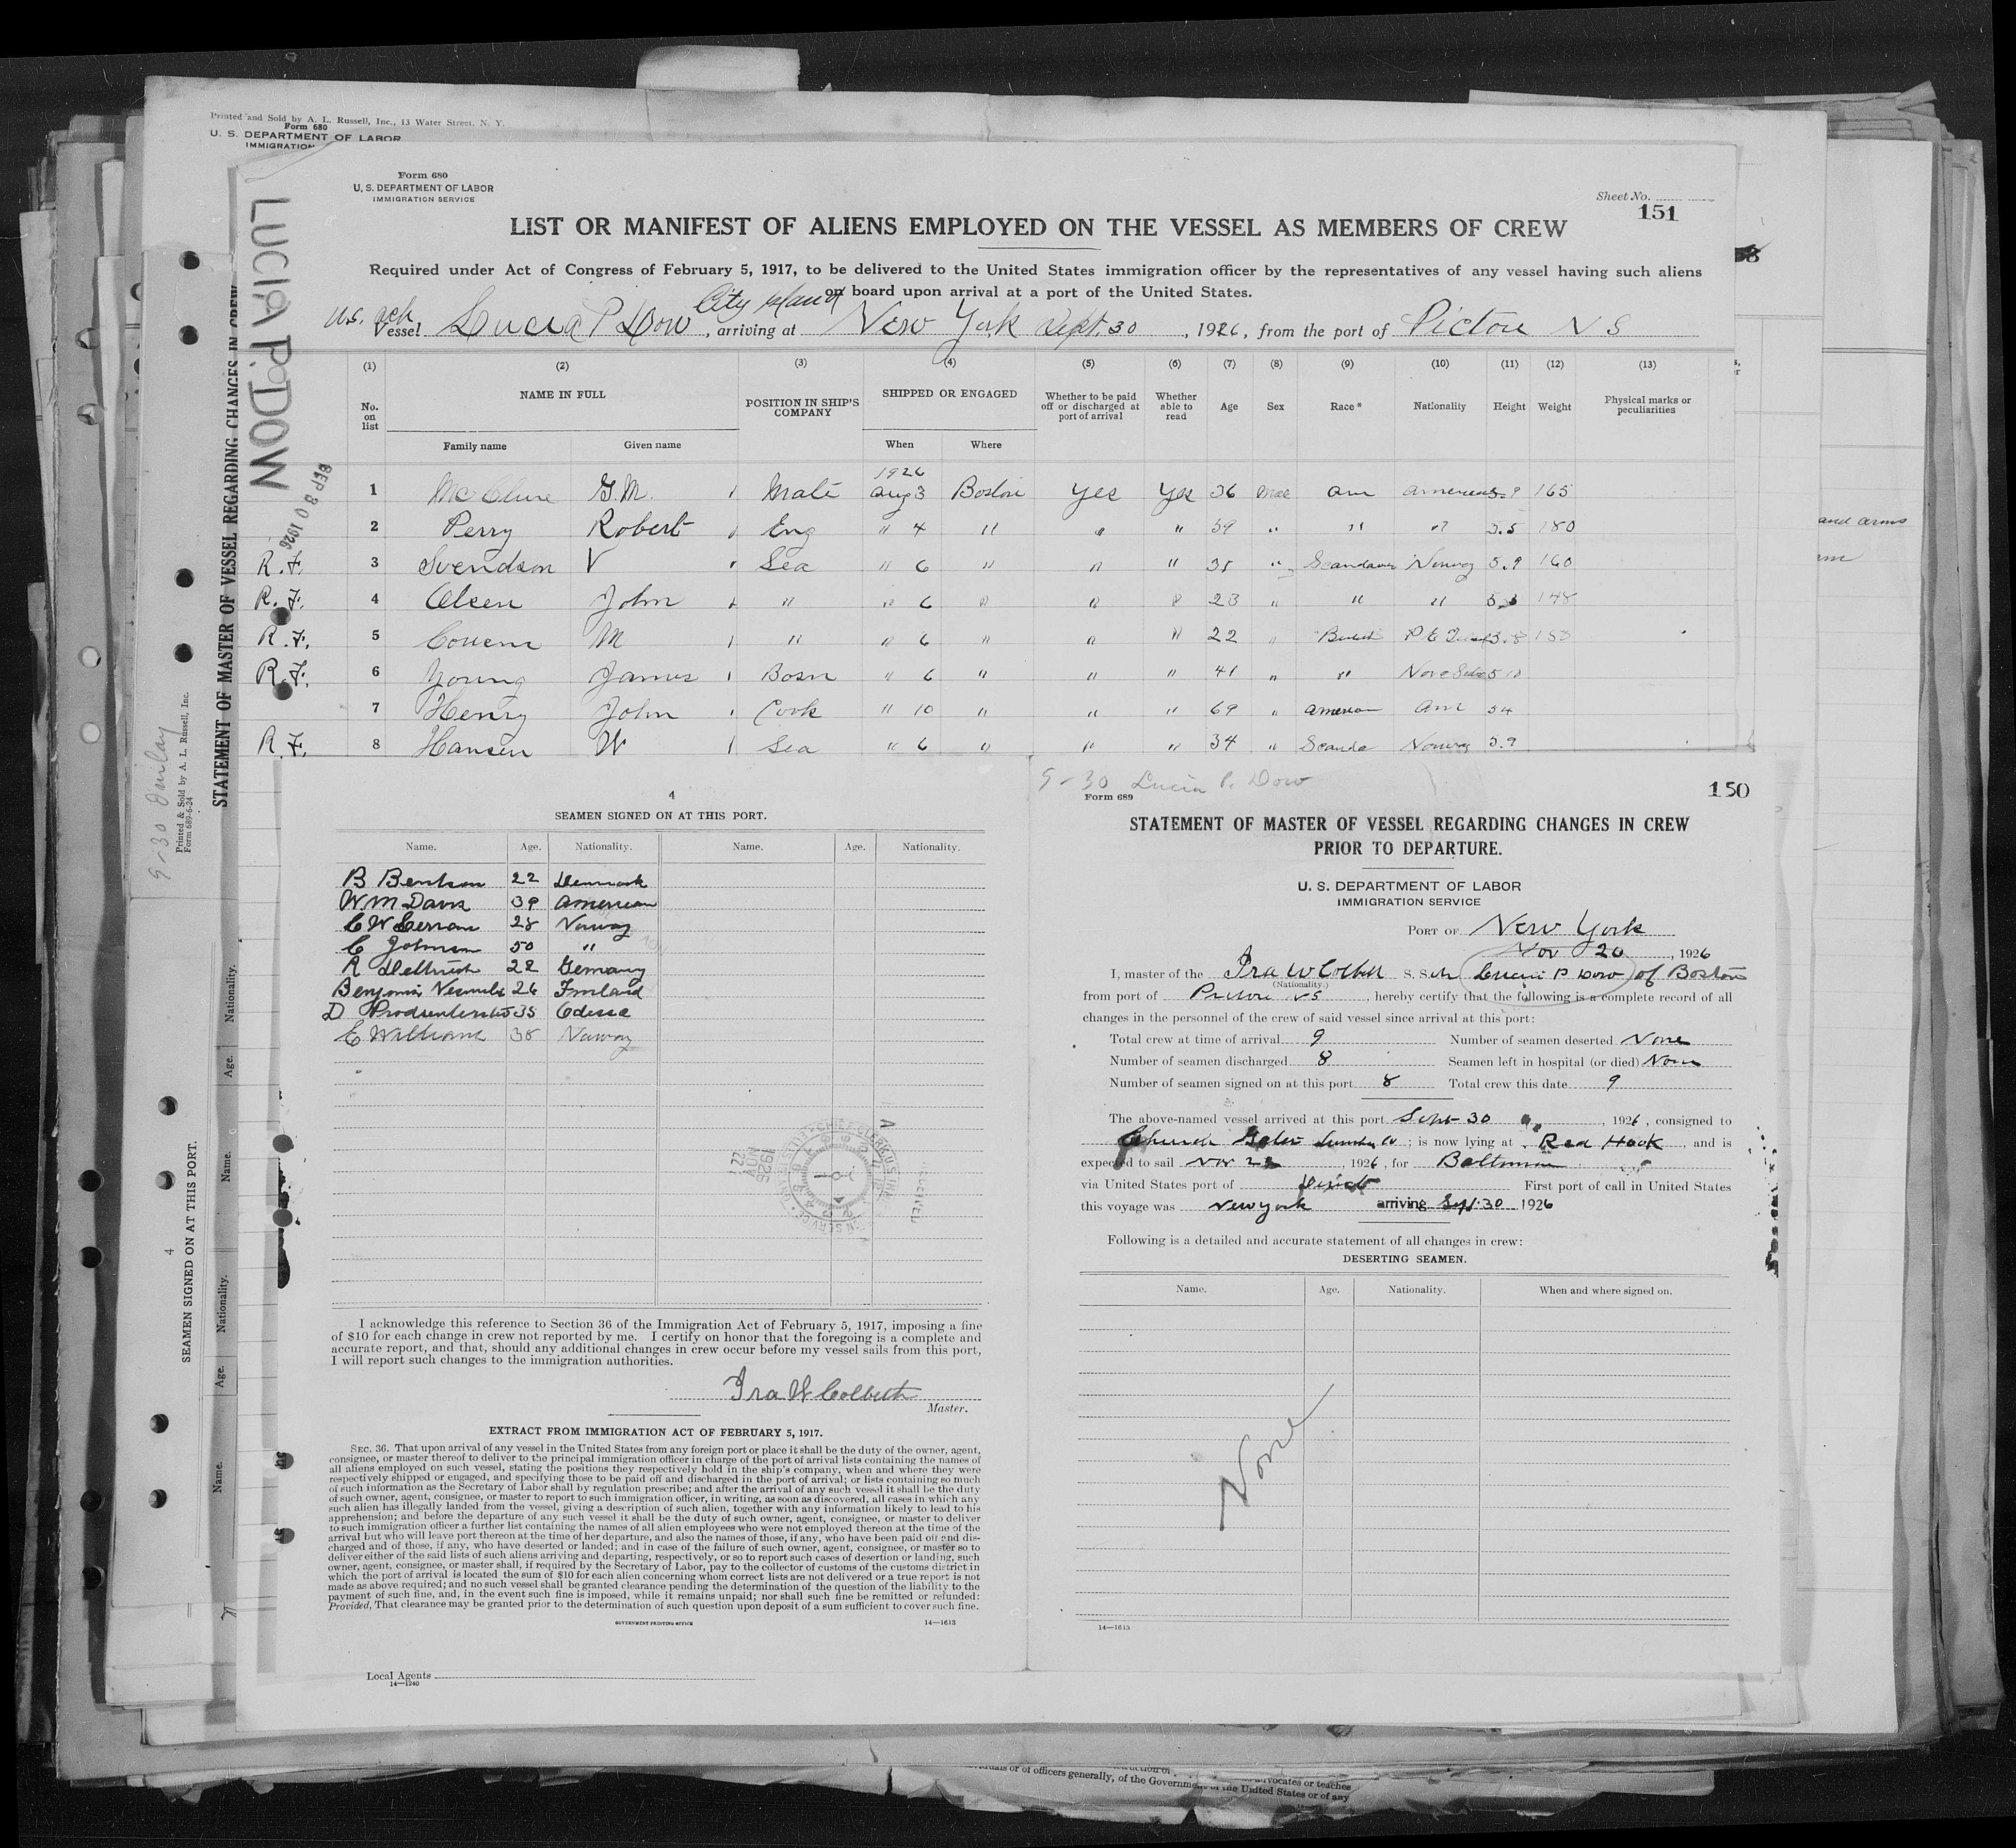 Printed and Sold by A. L. Russell, Inc., 13 Water Street, N. Y.
Form 680
U. S. DEPARTMENT OF LABOR
IMMIGRATION
Form 680
U. S. DEPARTMENT OF LABOR
IMMIGRATION SERVICE
Sheet No.
151
LIST OR MANIFEST OF ALIENS EMPLOYED ON THE VESSEL AS MEMBERS OF CREW
Required under Act of Congress of February 5, 1917, to be delivered to the United States immigration officer by the representatives of any vessel having such aliens
on board upon arrival at a port of the United States.
City Island
U.S. Sch Vessel Lucia P Dow, arriving at New York Sept. 30, 1926, from the port of Pictou N S
LUCIA P. DOW
SEP 30 1926
(1) (2) (3) (4) (5) (6) (7) (8) (9) (10) (11) (12) (13)
No. on list NAME IN FULL POSITION IN SHIP'S COMPANY SHIPPED OR ENGAGED Whether to be paid off or discharged at port of arrival Whether able to read Age Sex Race* Nationality Height Weight Physical marks or peculiarities
Family name Given name When Where
1926
1 McClure G.M. Mate Aug 3 Boston Yes Yes 36 Male Am American 5.9 165
2 Perry Robert Eng " 4 " " " 59 " " " 5.5 180
R.F. 3 Svendsen V Sea " 6 " " " 35 " Norway 5.9 160
R.F. 4 Olsen John " " 6 " " " 23 " " " 148
R.F. 5 M " " 6 " " " 22 " P E
R.F. 6 Young James Bosn " 6 " " " 41 " " 5 10
7 Henry John Cook " 10 " " " 69 " American Am 5 4
R.F. 8 Hansen W Sea " 6 " " " 34 " Scanda Norway 5.9
and arms
STATEMENT OF MASTER OF VESSEL REGARDING CHANGES IN CREW
Printed & Sold by A. L. Russell, Inc.
Form 689-6-24
9-30
4
SEAMEN SIGNED ON AT THIS PORT.
Name. Age. Nationality. Name. Age. Nationality.
4
SEAMEN SIGNED ON AT THIS PORT.
Name. Age. Nationality. Name. Age. Nationality.
B Bentson 22 Denmark
W M Davis 39 American
C W 28 Norway
C Johnson 50 "
R 22 Germany
Benjamin 26 Finland
D 35 Odessa
E Williams 38 Norway
RECEIVED
1926
NOV
22
I acknowledge this reference to Section 36 of the Immigration Act of February 5, 1917, imposing a fine
of $10 for each change in crew not reported by me. I certify on honor that the foregoing is a complete and
accurate report, and that, should any additional changes in crew occur before my vessel sails from this port,
I will report such changes to the immigration authorities.
Ira W Colbeth
Master.
EXTRACT FROM IMMIGRATION ACT OF FEBRUARY 5, 1917.
SEC. 36. That upon arrival of any vessel in the United States from any foreign port or place it shall be the duty of the owner, agent,
consignee, or master thereof to deliver to the principal immigration officer in charge of the port of arrival lists containing the names of
all aliens employed on such vessel, stating the positions they respectively hold in the ship's company, when and where they were
respectively shipped or engaged, and specifying those to be paid off and discharged in the port of arrival; or lists containing so much
of such information as the Secretary of Labor shall by regulation prescribe; and after the arrival of any such vessel it shall be the duty
of such owner, agent, consignee, or master to report to such immigration officer, in writing, as soon as discovered, all cases in which any
such alien has illegally landed from the vessel, giving a description of such alien, together with any information likely to lead to his
apprehension; and before the departure of any such vessel it shall be the duty of such owner, agent, consignee, or master to deliver
to such immigration officer a further list containing the names of all alien employees who were not employed thereon at the time of the
arrival but who will leave port thereon at the time of her departure, and also the names of those, if any, who have been paid off and dis-
charged and of those, if any, who have deserted or landed; and in case of the failure of such owner, agent, consignee, or master so to
deliver either of the said lists of such aliens arriving and departing, respectively, or so to report such cases of desertion or landing, such
owner, agent, consignee, or master shall, if required by the Secretary of Labor, pay to the collector of customs of the customs district in
which the port of arrival is located the sum of $10 for each alien concerning whom correct lists are not delivered or a true report is not
made as above required; and no such vessel shall be granted clearance pending the determination of the question of the liability to the
payment of such fine, and, in the event such fine is imposed, while it remains unpaid; nor shall such fine be remitted or refunded:
Provided, That clearance may be granted prior to the determination of such question upon deposit of a sum sufficient to cover such fine.
GOVERNMENT PRINTING OFFICE 14—1613
Local Agents
14—1240
9-30 Lucia P. Dow
Form 689
150
STATEMENT OF MASTER OF VESSEL REGARDING CHANGES IN CREW
PRIOR TO DEPARTURE.
U. S. DEPARTMENT OF LABOR
IMMIGRATION SERVICE
PORT OF New York
Nov 20, 1926
I, master of the Ira W Colbeth S. Sch Lucia P Dow of Boston
(Nationality.)
from port of Pictou NS, hereby certify that the following is a complete record of all
changes in the personnel of the crew of said vessel since arrival at this port:
Total crew at time of arrival 9 Number of seamen deserted None
Number of seamen discharged 8 Seamen left in hospital (or died) None
Number of seamen signed on at this port 8 Total crew this date 9
The above-named vessel arrived at this port Sept 30, 1926, consigned to
Church Gates Lumber Co; is now lying at Red Hook, and is
expected to sail Nov 22, 1926, for Baltimore
via United States port of Direct First port of call in United States
this voyage was New York arriving Sept 30 1926
Following is a detailed and accurate statement of all changes in crew:
DESERTING SEAMEN.
Name. Age. Nationality. When and where signed on.
None
14—1613
of officers generally, of the Government of the United States or of any
advocates or teaches